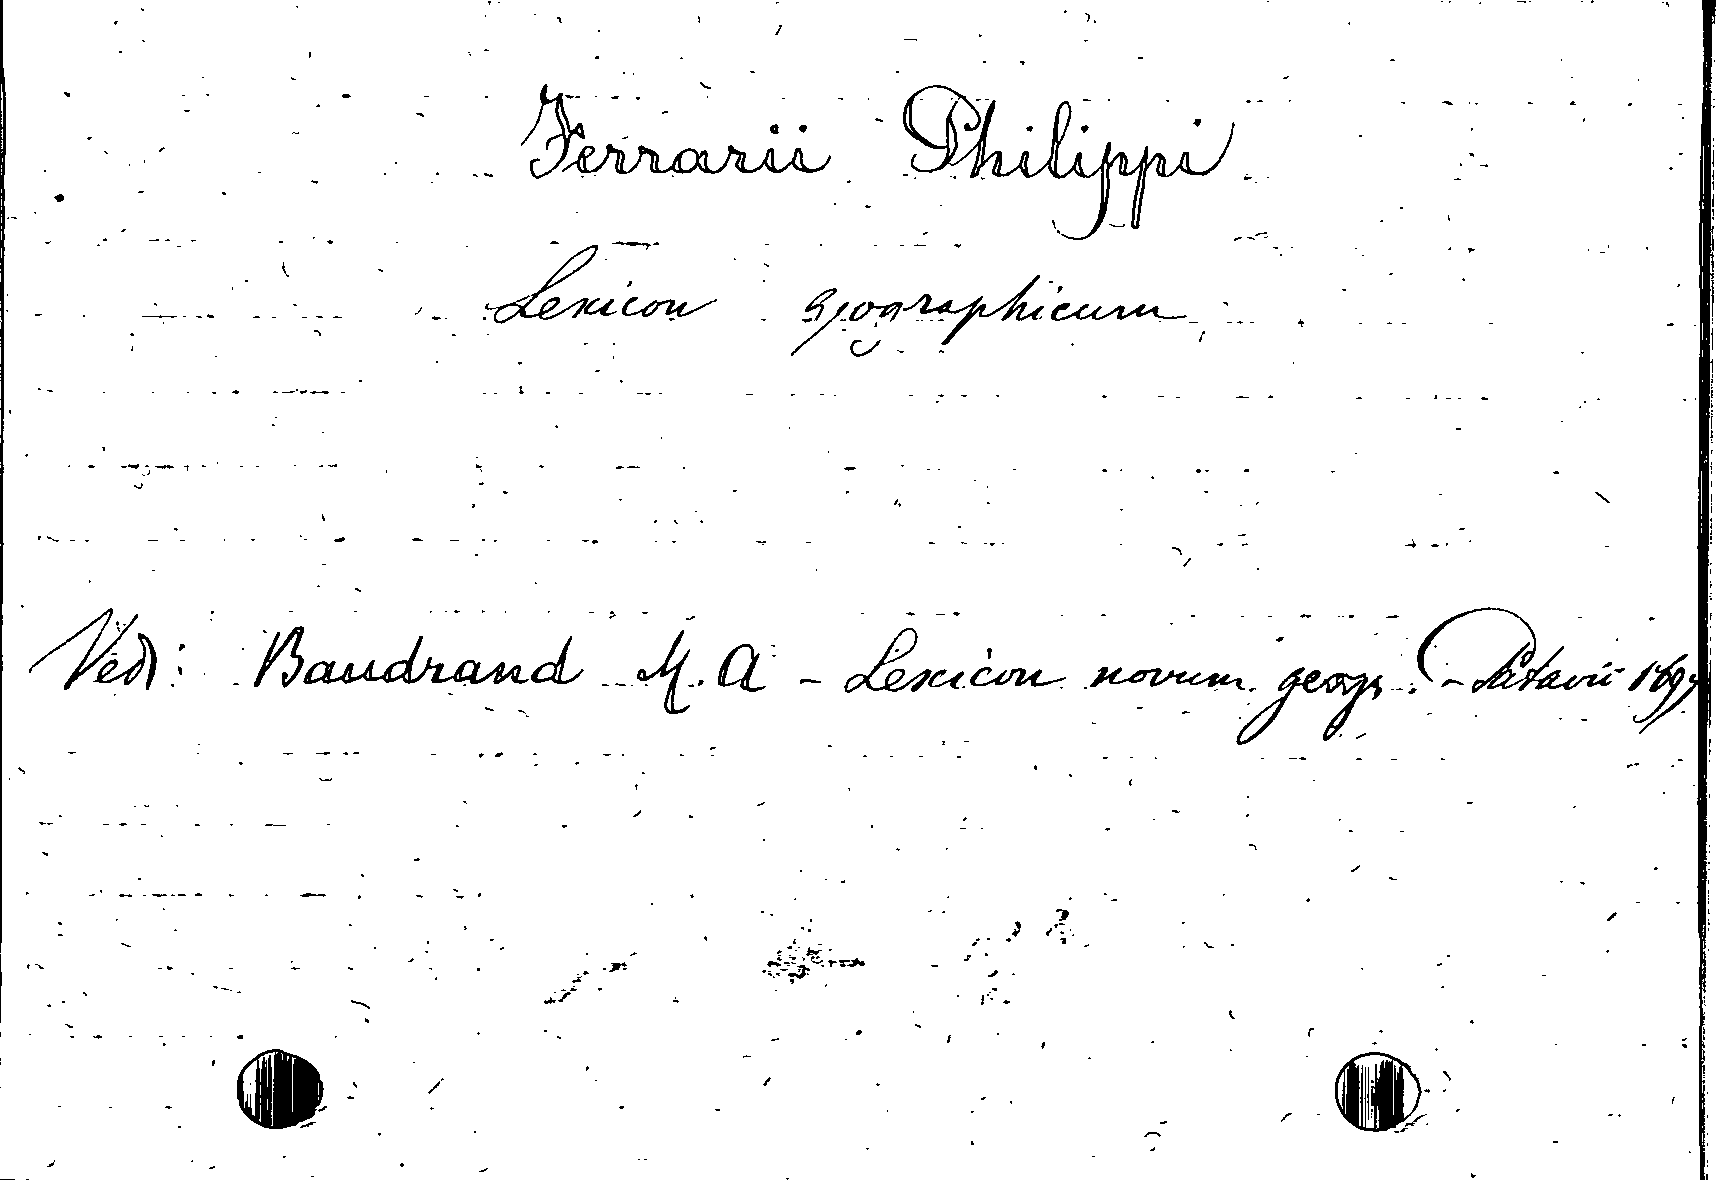 Ferrarii Philippi
Lexicon geographicum
Vedi: Baudrand M. A - Lexicon novum geogr. - Patavii 1697